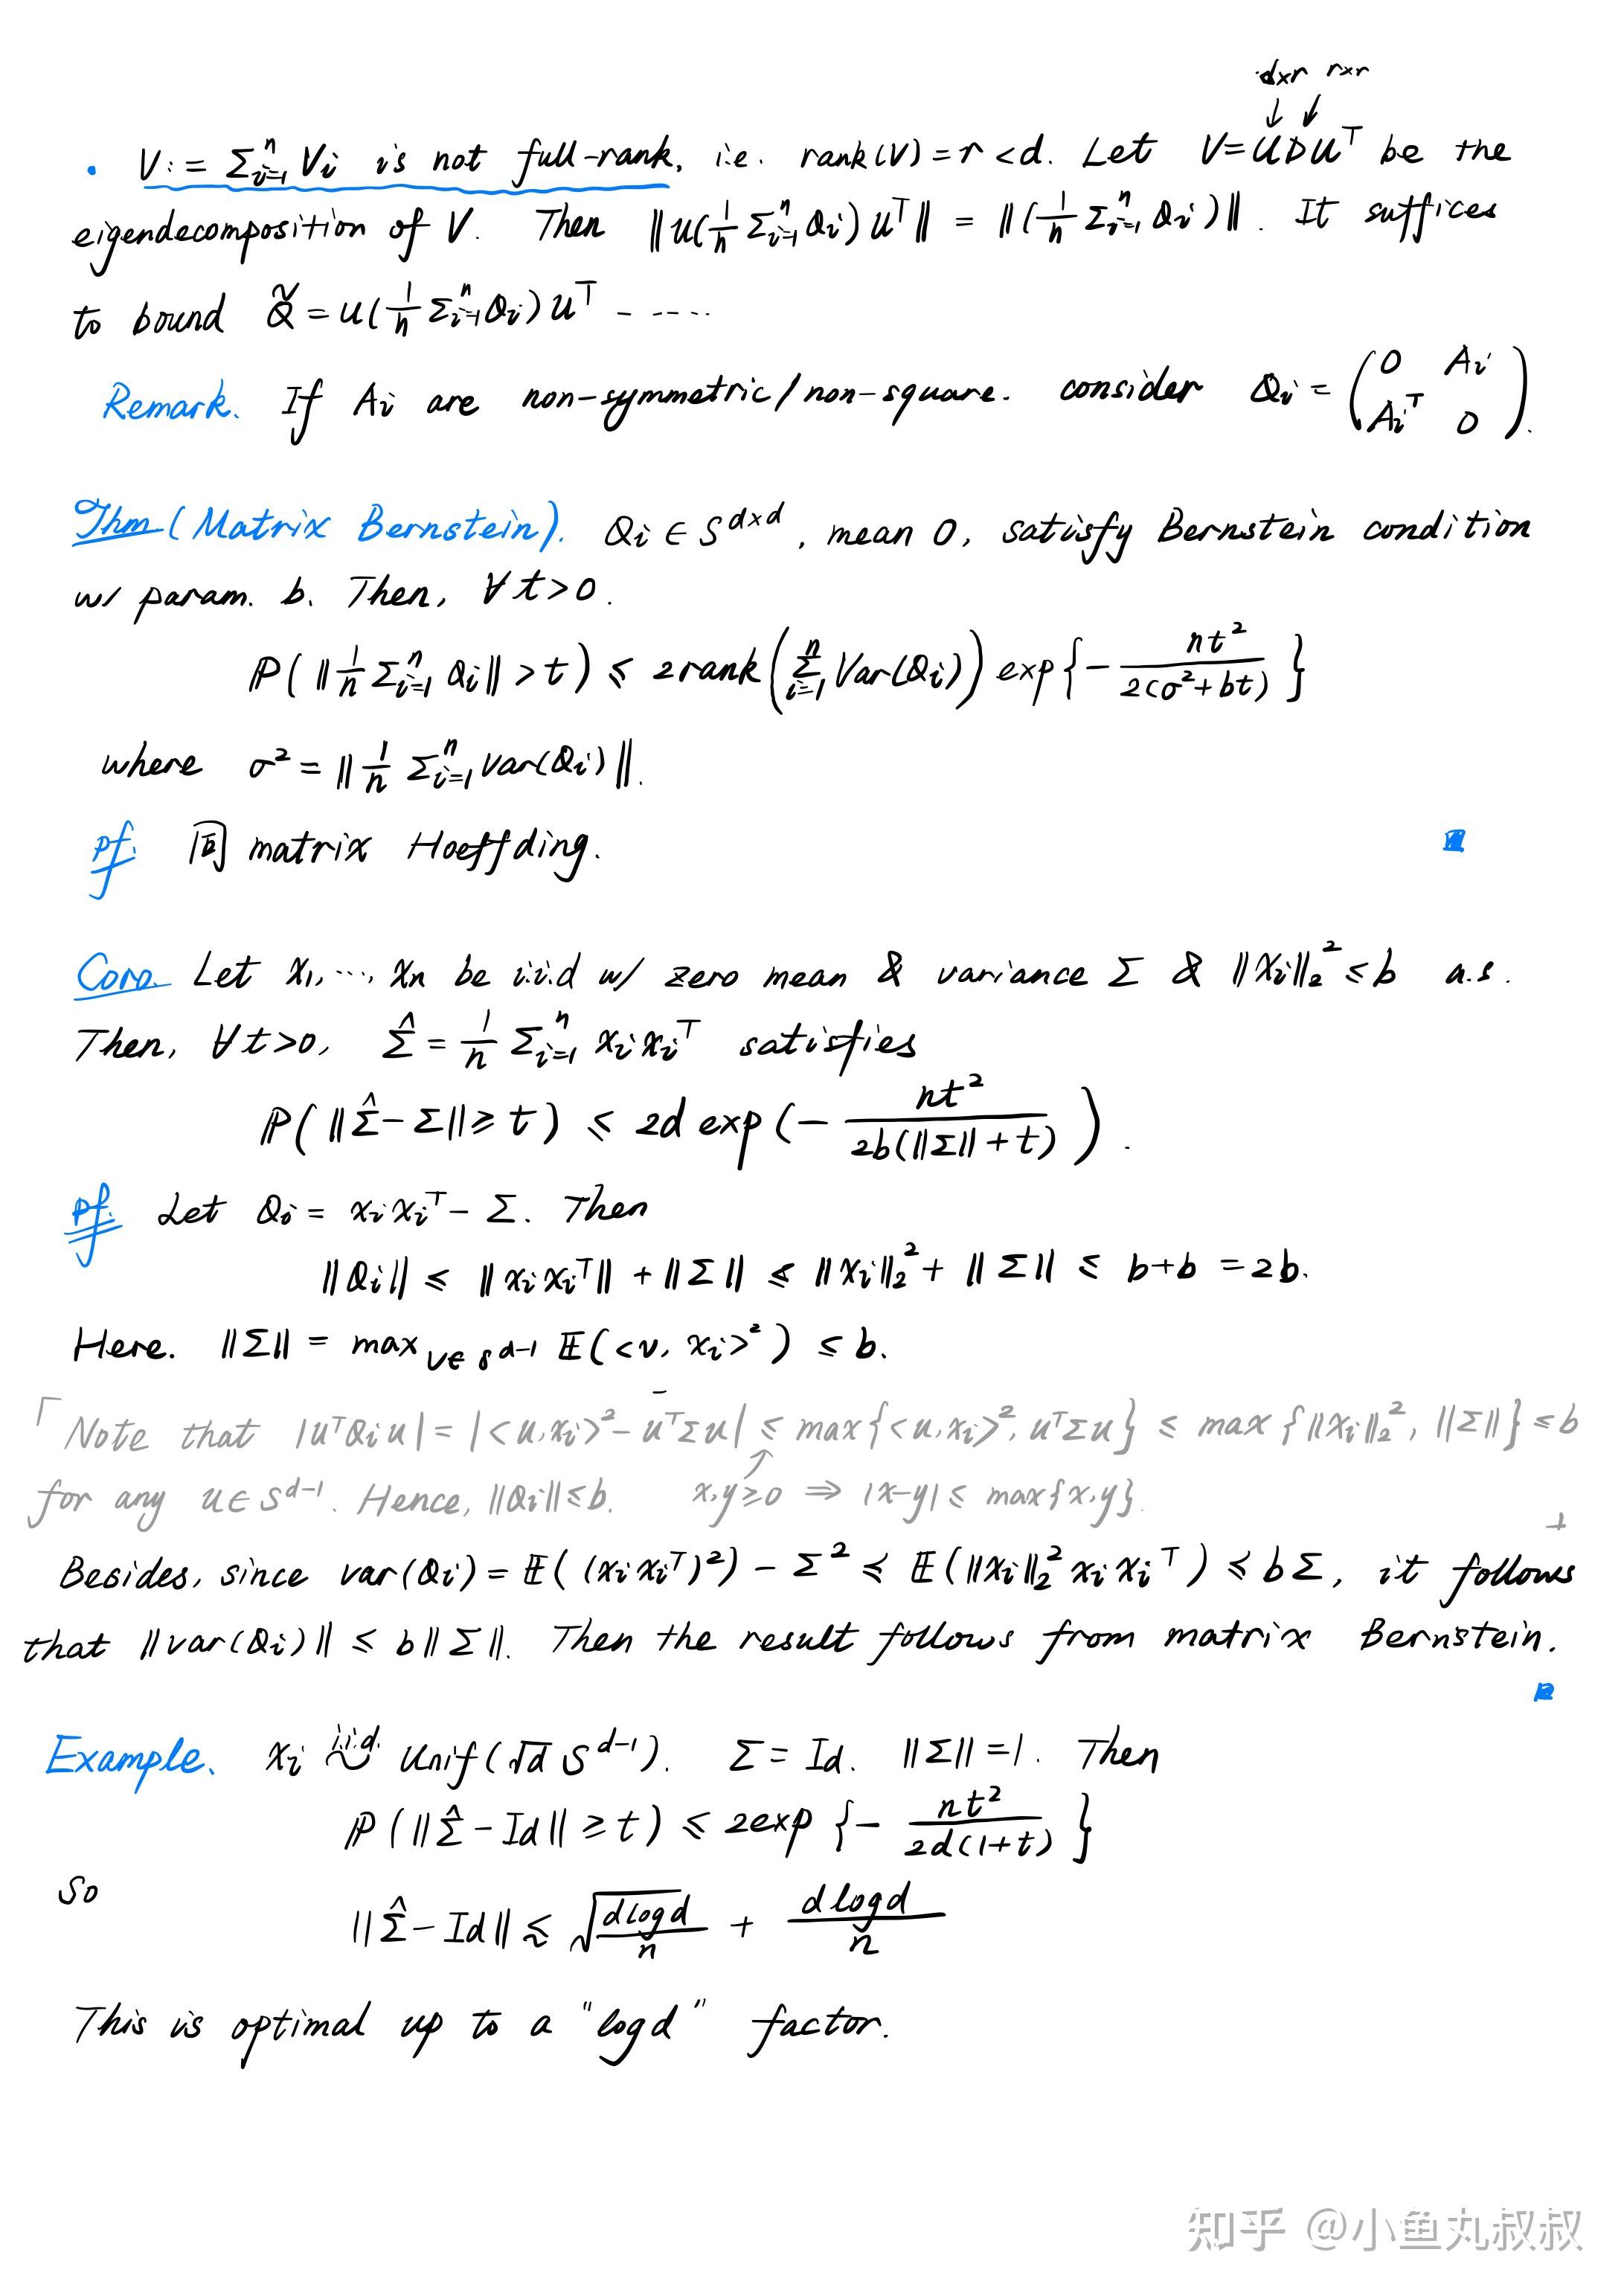 d×r r×r
↓ ↓
• V := Σᵢ₌₁ⁿ Vᵢ is not full-rank, i.e. rank(V) = r < d. Let V = UDUᵀ be the
eigendecomposition of V. Then ‖U(1/n Σᵢ₌₁ⁿ Qᵢ)Uᵀ‖ = ‖(1/n Σᵢ₌₁ⁿ Qᵢ)‖. It suffices
to bound Q̃ = U(1/n Σᵢ₌₁ⁿ Qᵢ)Uᵀ ------
Remark. If Aᵢ are non-symmetric/non-square. consider Qᵢ = (0 Aᵢ ; Aᵢᵀ 0).
Thm (Matrix Bernstein). Qᵢ ∈ S^{d×d}, mean 0, satisfy Bernstein condition
w/ param. b. Then, ∀t>0.
ℙ(‖1/n Σᵢ₌₁ⁿ Qᵢ‖ > t) ≤ 2rank(Σᵢ₌₁ⁿ Var(Qᵢ)) exp{− nt² / 2(σ²+bt)}
where σ² = ‖1/n Σᵢ₌₁ⁿ Var(Qᵢ)‖.
pf. 同 matrix Hoeffding.
Coro. Let x₁, ⋯, xₙ be i.i.d w/ zero mean & variance Σ & ‖xᵢ‖₂² ≤ b a.s.
Then, ∀t>0, Σ̂ = 1/n Σᵢ₌₁ⁿ xᵢxᵢᵀ satisfies
ℙ(‖Σ̂ − Σ‖ ≥ t) ≤ 2d exp(− nt² / 2b(‖Σ‖+t)).
pf. Let Qᵢ = xᵢxᵢᵀ − Σ. Then
‖Qᵢ‖ ≤ ‖xᵢxᵢᵀ‖ + ‖Σ‖ ≤ ‖xᵢ‖₂² + ‖Σ‖ ≤ b+b = 2b.
Here. ‖Σ‖ = max_{v∈S^{d−1}} 𝔼(<v, xᵢ>²) ≤ b.
「Note that |uᵀQᵢu| = |<u,xᵢ>² − uᵀΣu| ≤ max{<u,xᵢ>², uᵀΣu} ≤ max{‖xᵢ‖₂², ‖Σ‖} ≤ b
for any u∈S^{d−1}. Hence, ‖Qᵢ‖ ≤ b. x,y≥0 ⇒ |x−y| ≤ max{x,y}.」
Besides, since var(Qᵢ) = 𝔼((xᵢxᵢᵀ)²) − Σ² ≼ 𝔼(‖xᵢ‖₂² xᵢxᵢᵀ) ≼ bΣ, it follows
that ‖var(Qᵢ)‖ ≤ b‖Σ‖. Then the result follows from matrix Bernstein.
Example. xᵢ i.i.d. ~ Unif(√d S^{d−1}). Σ = Id. ‖Σ‖ = 1. Then
ℙ(‖Σ̂ − Id‖ ≥ t) ≤ 2exp{− nt² / 2d(1+t)}
So
‖Σ̂ − Id‖ ≲ √(dlogd / n) + dlogd / n
This is optimal up to a "logd" factor.
知乎 @小鱼丸叔叔